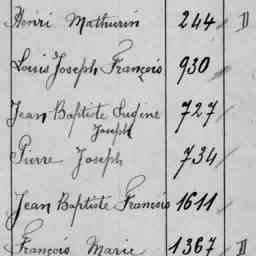 Henri Mathurin 244 D
Louis Joseph François 930
Jean Baptiste Eugène 727
Joseph
Pierre Joseph 734
Jean Baptiste Francois 1611
François Marie 1367 D